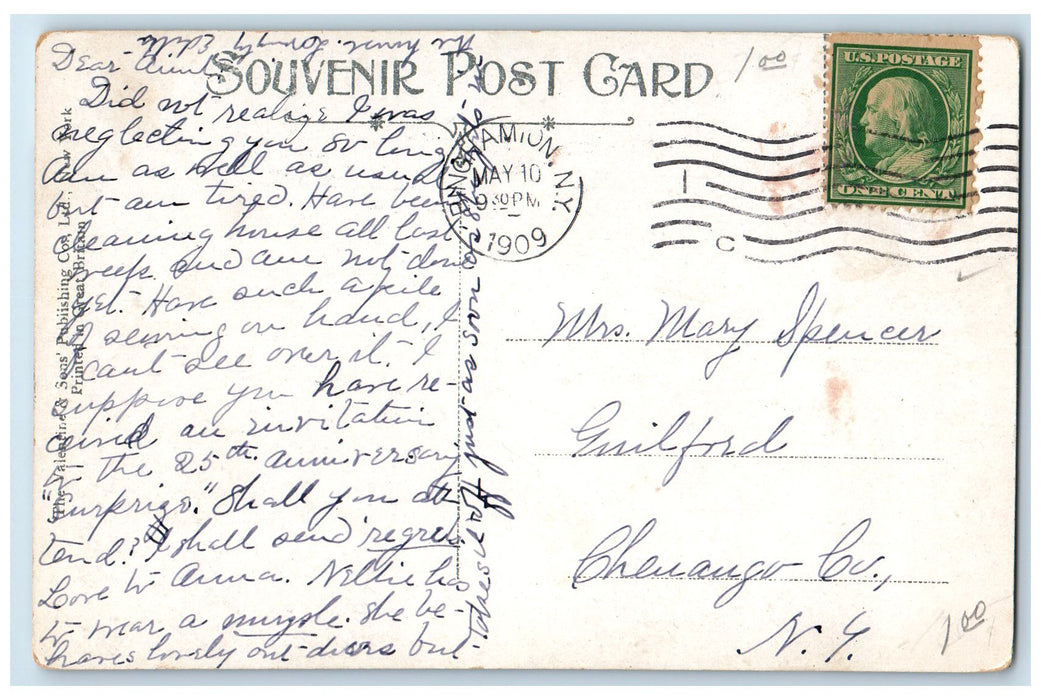 SOUVENIR POST CARD
Dear Aunt
Did not realize I was
neglecting you so long
Am as well as usual
but am tired. Have been
cleaning house all last
week and am not done
yet. Have such a pile
of sewing on hand, I
can't see over it. I
suppose you have re-
ceived an invitation
to the 25th anniversary
"surprise." Shall you at-
tend? I shall send regrets
Love to Anna. Nellie has
to wear a muzzle. She be-
haves lovely out-doors but
takes it off just as soon as she's in
the house. Lovingly Edith
The Valentine & Sons' Publishing Co., Ltd., New York
Printed in Great Britain
BINGHAMTON N.Y.
MAY 10
9 30 PM
1909
1
C
U.S. POSTAGE
ONE CENT
1.00
Mrs. Mary Spencer
Guilford
Chenango Co.,
N. Y.
1.00